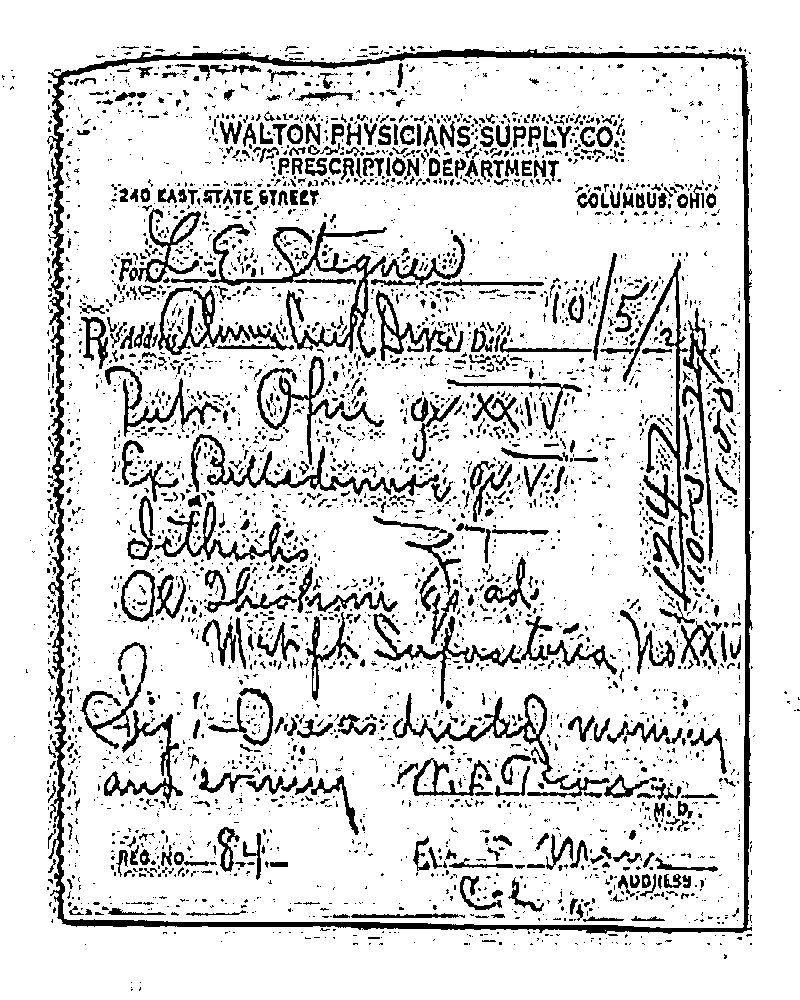 WALTON PHYSICIANS SUPPLY CO.
PRESCRIPTION DEPARTMENT
240 EAST STATE STREET COLUMBUS, OHIO
For L. E. Stegner
℞ Address Drive Date 10/5/2
Pulv. Opii gr XXIV
Ex Belladonnae gr VI
Icthiolis
Ol. Theobrom ad
Mist ft. Suposetoria No XXIV
Sig:- One as directed morning
and evening M. D.
REG. NO. 84 Main
ADDRESS.
Col
1247
10-5-25